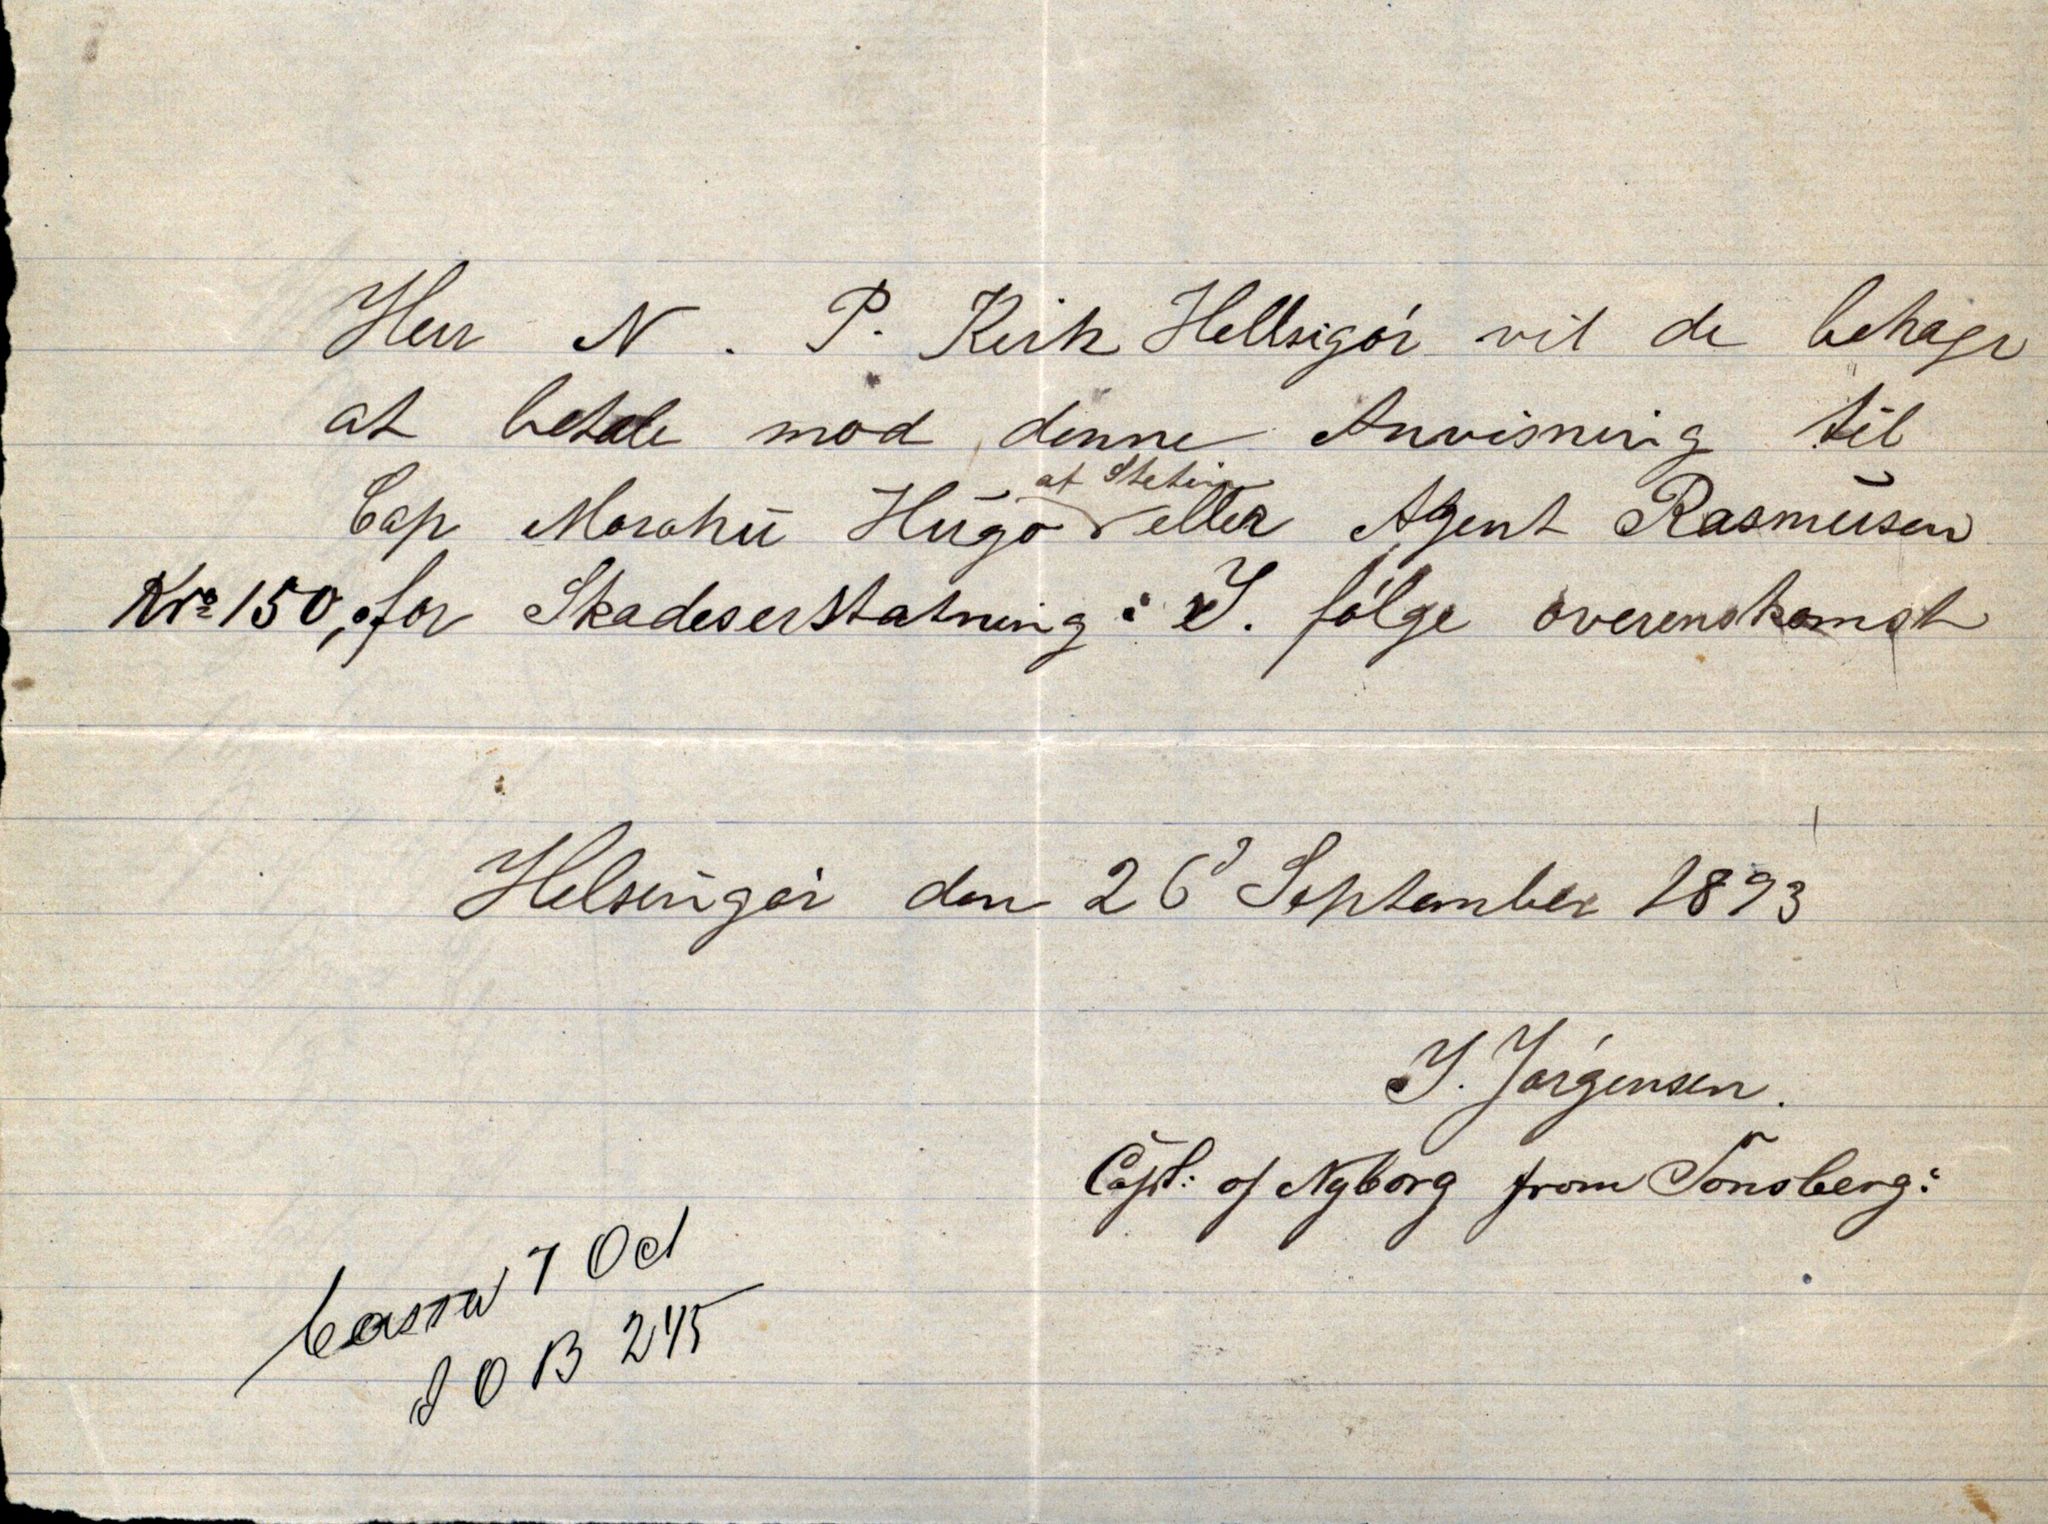 Herr N. P. Kirk Hellsigör vil de behage
at betale mod denne Anvisning til
at Stetin
Cap Marohü Hügo eller Agent Rasmüsen
Kr 150, for Skadeserstatning: I. følge overenskomst
Helsingör den 26 September 1893
J. Jörgensen.
Capt: of Nyborg from Tönsberg:
Cassa 7 Oct
J O B 245